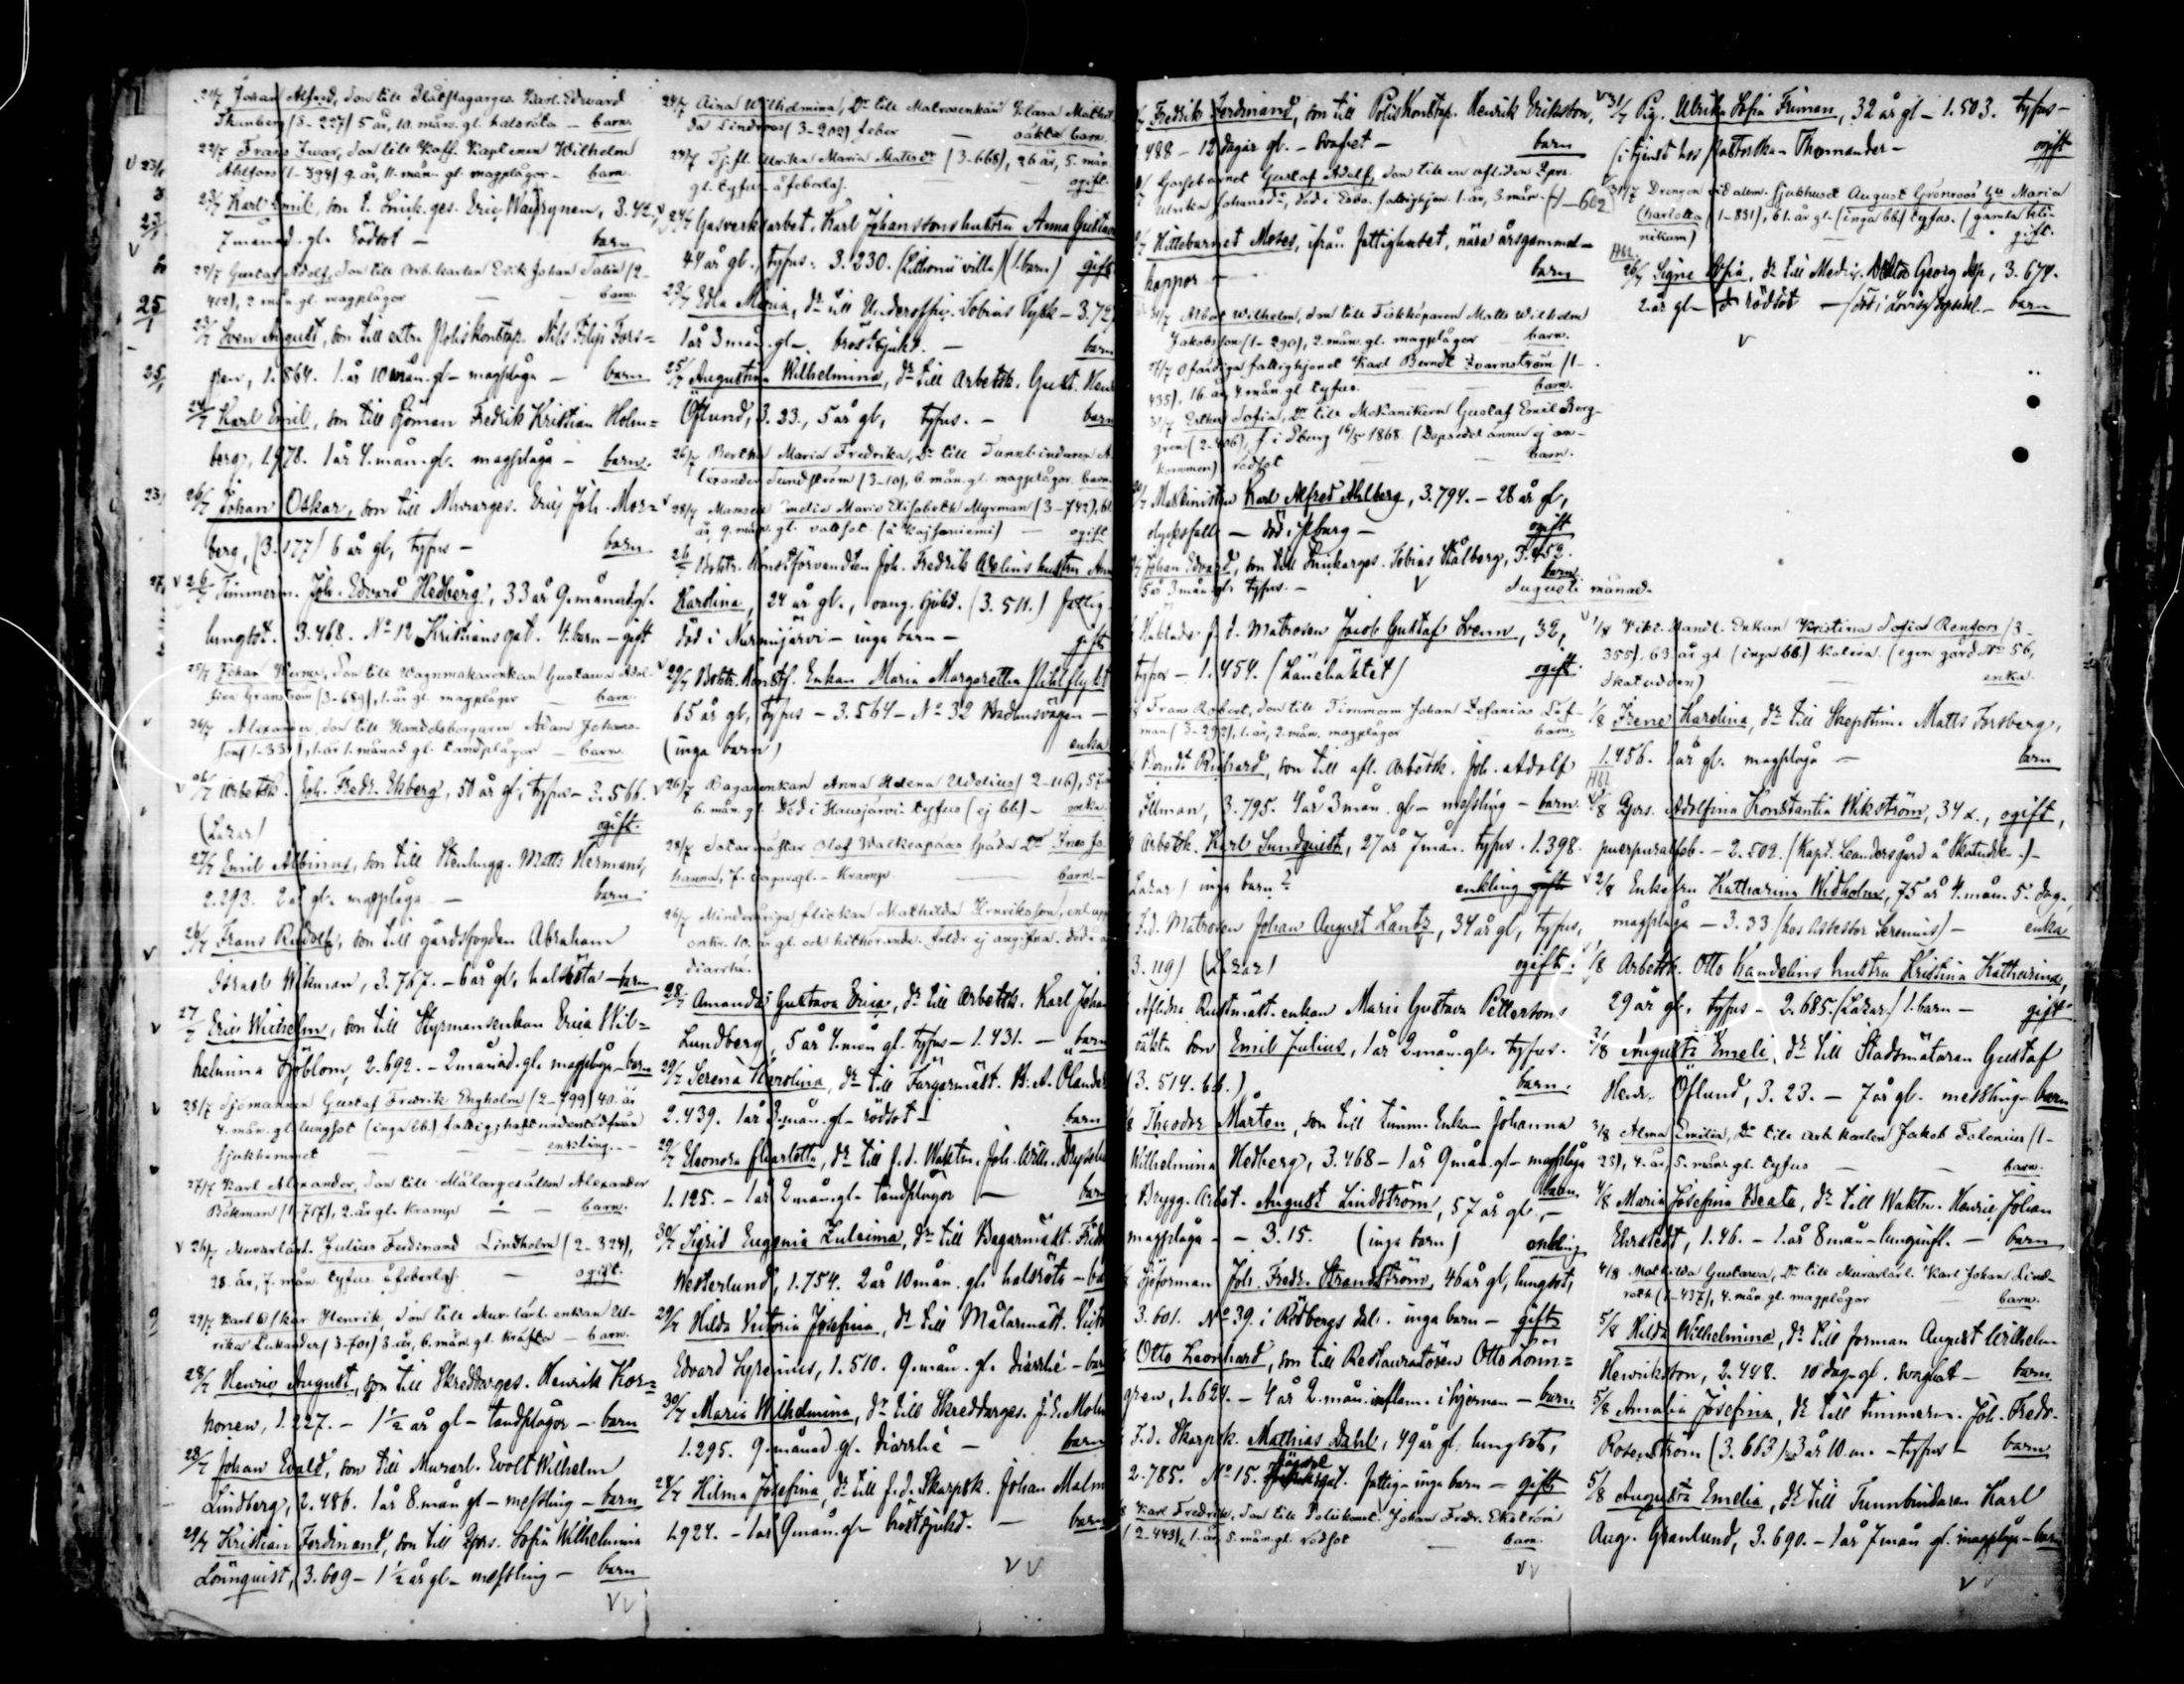 21/7 Johan Alfred, son till Plåtslagarges. Karl Edward
(3-227) 5 år, 10. mån. gl. halsröta - barn.
22/7 Frans Iwar, son till Koff. Kaptenen Wilhelm
Ahlfors (1-394) 9. år, 11. mån. gl. magplågor - barn.
23/7 Karl Emil, son t. Snick. ges. Eric Wäyrynen, 3.42,
7 månad. gl. rödsot - barn
25/7 Gustaf Adolf, son till Arb. karlen Erik Johan Salin (2-
402), 2. mån. gl. magplågor - barn.
23/7 Sven August, son till extra Poliskonstap. Nils Filip Fors=
1.864. 1 år 10 mån. gl - magplåga - barn
24/7 Karl Emil, son till Sjöman Fredrik Kristian Holm=
berg, 1.978. 1 år 4. mån. gl. magplåga - barn.
26/7 Johan Oskar, son till Murarges. Eric Joh. Mor=
berg, (3.177) 6 år gl, tyfus - barn
26/7 Timmerm. Joh. Edvard Hedberg, 33 år 9. månad. gl.
lungsot. 3.468. No 12 Kristinsgat. 4. barn - gift
25/7 Johan Werner, son till Vagnmakarenkan Gustava Adol-
fina Granström (3-689), 1. år gl. magplågor - barn.
26/7 Alexander, son till Handelsborgaren Adam Johans-
son (1-33), 1. år 1. månad gl. tandplågor - barn.
26/7 Arbetsk. Joh. Fredr. Ekberg, 50 år gl, tyfus - 3.566.
(Lazar) ogift.
27/7 Emil Albinus, son till Stenhugg. Matts Hermans,
2.293. 2 år gl. magplåga - barn.
26/7 Frans Rudolf, son till gårdsfogden Abraham
Israel Wikman, 3.767. - 6 år gl, halsröta - barn
27/7 Eric Wilhelm, son till Styrmansenkan Erica Wil=
helmina Sjöblom, 2.692. - 2 månad. gl. magplåga - barn
25/7 Sjömannen Gustaf Fredrik Engholm (2-799) 40. år
4. mån. gl. lungsot (inga bb.) fattig, haft understöd från
Sjukhemmet - enkling. -
27/7 Karl Alexander, son till Målargesällen Alexander
Bökman (1-757), 2. år gl. kramp - barn.
26/7 Murarlärl. Julius Ferdinand Lindholm (2-324),
28. år, 7. mån. tyfus. å feberlas. - ogift.
29/7 Karl Oskar Henrik, son till Mur. lärl. enkan Ul-
rika Lukander (3-701) 3. år, 6. mån. gl. kräfta - barn.
28/7 Henric August, son till Skreddarges. Henrik Kor=
honen, 1.227. - 1½ år gl - tandplågor - barn
28/7 Johan Evald, son till Murarl. Evolt Wilhelm
Lindberg, 2.486. 1 år 8. mån gl - messling - barn
29/7 Kristian Ferdinand, son till Qprs. Sofia Wilhelmina
Lönnquist, 3.609 - 1½ år gl - messling - barn
24/7 Aina Wilhelmina, Dr till Matrosenkan Klara Mathil-
da Lindroos (3-202) feber - oäkta barn
24/7 Tj. fl. Ulrika Maria Matsdr (3-668), 26 år, 5. mån
gl. tyfus å feberlas. - ogift.
24/7 Gasverksarbet. Karl Johanssons hustru Anna Gustava
44 år gl., tyfus. 3.230. (villa) (1. barn) gift
23/7 Edla Maria, dr till Underoffic. Tobias Tykk - 3.72,
1 år 3 mån. gl - bröstsjukd. - barn
25/7 Augustina Wilhelmina, dr till Arbetsk. Gust. Henr.
Öflund, 3.23., 5 år gl, tyfus. - barn
26/7 Bertha Maria Fredrika, Dr till Tunnbindaren A-
lexander Sundström (3-10), 6. mån. gl. magplågor. barn.
28/7 Mamsell Emelie Maria Elisabeth Myrman (3-742), 61.
år, 9. mån. gl. vattsot. (å Kajsaniemi) - ogift
26/7 Bokh. Konstförvandten Joh. Fredrik Avelins hustru Ann
Karolina, 24 år gl., sjukd. (3.511.) fattig-
död i Nurmijärvi - inga barn - gift
29/7 Boktr. Konstf. Enkan Maria Margaretha Pihlflykt
65 år gl, tyfus - 3.564 - No 32 Badhusvägen -
(inga barn) enka
26/7 Bagarenkan Anna Helena Udelius (2-116), 57. år
6. mån. gl. Död i Hausjärvi. tyfus (ej bb) - enka.
28/7 Sotarmästar Olof Walkeapääs späda Dr Ines Jo-
hanna, 7. dagar gl. - Kramp - barn.
26/7 Minderåriga flickan Mathilda Henriksson, enl. upp
omkr. 10. år gl. och hithörande. föräldr. ej angifna. död i
diarrhé.
28/7 Amanda Gustava Erica, dr till Arbetsk. Karl Johan
Lundberg, 5 år 4. mån gl. tyfus - 1.431. - barn
29/7 Serena Karolina, dr till Färgarmäst. B. A. Ölander
2.439. 1 år 3. mån. gl - rödsot - barn
29/7 Eleonora Charlotta, dr till f.d. Waktm. Joh. Wilh.
1.125. - 1 år 2 mån. gl. tandplågor - barn
30/7 Sigrid Eugenia Zuleima, dr till Bagarmäst. Fredr
Westerlund, 1.754. 2 år 10 mån. gl. halsröta - ba
29/7 Hilda Victoria Josefina, dr till Målarmäst. Vict
Edvard Lyrenius, 1.510. 9. mån. gl. diarrhé - bar
30/7 Maria Wilhelmina, dr till Skreddarges. J. E. Molin
1.295. 9. månad. gl. diarrhé - barn
28/7 Hilma Josefina, dr till f.d. Skarpsk. Johan Malm
1.924. - 1 år 9 mån. gl - bröstsjukd. - barn
Fredrik Ferdinand, son till Poliskonstap. Henrik Eriksson,
1.488 - 12 dagar gl. - svaghet - barn
Gossebarnet Gustaf Adolf, son till en afliden Qprs.
Ulrika Johansdr, död i Esbo. fattighjon. 1. år, 3. mån. (1-602
Hittebarnet Moses, ifrån Fattighuset, nära årsgammal -
koppor - barn
31/7 Albot Wilhelm, son till Fiskköparen Matts Wilhelm
Jakobsson (1-290), 2. mån. gl. magplågor barn.
27/7 Ofärdiga fattighjonet Karl Berndt Kvarnström (1-
435), 16. år, 4. mån. gl tyfus. barn.
31/7 Esther Sofia, Dr till Mekanikern Gustaf Emil Berg-
gren (2-406), f. i Pburg 16/5 1868. (Dopsedel ännu ej an-
kommen) rödsot barn.
Maskinisten Karl Alfred Ahlberg, 3.794. - 28 år gl,
olycksfalls - död i Pburg - ogift
Johan Edvard, son till Snickarges. Tobias Stålberg, 3.452.
5 år 3 mån. gl. tyfus. - barn
Augusti månad.
Häktade f. d. Matrosen Jacob Gustaf Svenn, 32,
tyfus - 1.454. (Länehäktet) ogift.
Frans Robert, son till Timmerm Johan Zefanias Löf-
man (3-292), 1. år, 2. mån. magplågor barn.
Berndt Richard, son till afl. Arbetsk. Joh. Adolf
Illman, 3.795. 4 år 3 mån. gl - messling - barn.
Arbetsk. Karl Sundquist, 27 år 7 mån. tyfus. 1.398.
Lazar) inga barn? enkling gift
F.d. Matrosen Johan August Lantz, 34 år gl, tyfus,
3.119) (Lazar) ogift.
Aflidna Rustmäst. enkan Maria Gustava Pettersons
oäkta son Emil Julius, 1 år 2. mån. gl. tyfus.
(3.514. bb.) barn.
Theodor Mårten, son till timm. Enkan Johanna
Wilhelmina Hedberg, 3.468 - 1 år 9 mån. gl - magplåga
barn.
Brygg. Arbet. August Lindström, 57 år gl. -
magplåga - 3.15. (inga barn) enkling
Sjöforman Joh. Fredr. Strandström, 46 år gl, lungsot,
3.601. No 39. i Rödbergs dal. inga barn - gift
Otto Leonhard, son till Restauratören Otto Lönn=
gren, 1.624. - 4 år 2. mån. inflam. i hjernan - barn.
F.d. Skarpsk. Mathias Dahl, 49 år gl. lungsot,
2.785. No 15. fattig - inga barn - gift
Karl Fredrik, son till Poliskonst. Johan Fredr. Ekström
(2-443), 1. år, 5. mån. gl. rödsot - barn.
31/7 Pig. Ulrika Sofia Friman, 32 år gl - 1.503. tyfus -
(i tjenst hos Thomander - ogift
31/7 Drengen vid allm. sjukhuset August Grönroos' hu Maria
Charlotta (1-831), 61. år gl. (inga bb.) tyfus. (gamla kli-
nikum) gift.
1862.
26/7 Signe Sofia, dr till Medic. Doktor Georg Asp, 3.674.
2. år gl - rödsot - död i Lovisa Sogn. - barn
1/8 Vikt. Handl. Enkan Kristina Sofia Renfors (3-
355). 63 år gl (inga bb.) kolera. (egen gård No 56,
Skatudden) enka.
1/8 Irene Karolina, dr till Skeppstim. Matts Forsberg,
1.456. 1 år gl. magplåga - barn
1862
Qprs. Adolfina Konstantia Wikström, 34 å., ogift,
puerpuralfeb. - 2.502. (Kapt. Leanders gård å Skatudd.) -
2/8 Enkefru Katharina Widholm, 75 år 4. mån. 5. dag.,
magplåga - 3.33 (hos Assessor Serenius) - enka
1/8 Arbetsk. Otto Kandelins hustru Kristina Katharina,
29 år gl, tyfus - 2.685. (Lazar.) 1. barn - gift
3/8 Augusta Emeli, dr till Stadsmätaren Gustaf
Henr. Öflund, 3.23. - 7 år gl. messling - barn
3/8 Alma Emilia, Dr till Arb. karlen Jakob Falenius (1-
23), 4. år, 5. mån. gl. tyfus - barn.
4/8 Maria Josefina Beata, dr till Waktm. Henric Johan
Ehrstedt, 1.46. - 1. år 8 mån - lunginfl. - barn
4/8 Mathilda Gustava, Dr till Murarlärl. Karl Johan Lind-
roth (1-437), 4. mån. gl. magplågor barn.
5/8 Hilda Wilhelmina, dr till forman August Wilhelm
Henriksson, 2.448. 10 dag. gl. svaghet - barn
5/8 Amalia Josefina, dr till timmerm. Joh. Fredr.
Rosenström (3.663) 3 år 10. m. - tyfus - barn
5/8 Augusta Emelia, dr till Tunnbindaren Karl
Aug. Granlund, 3.690. - 1 år 7 mån gl. magplåga - barn